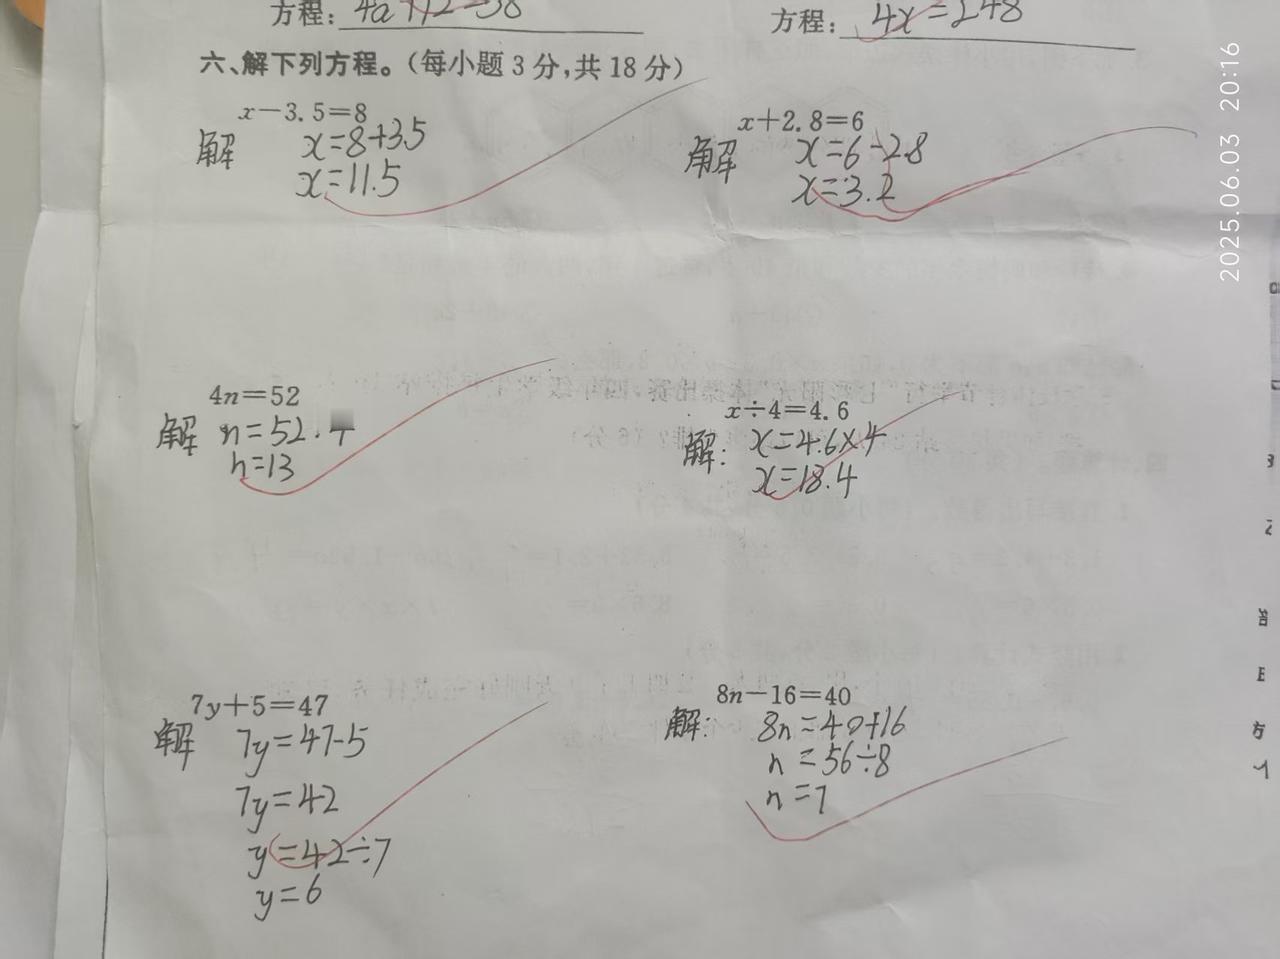 方程：4a+12=38
方程：4x=248
六、解下列方程。（每小题3分，共18分）
x－3.5=8
解 x=8+3.5
x=11.5
x+2.8=6
解 x=6-2.8
x=3.2
4n=52
解 n=52
n=13
x÷4=4.6
解：x=4.6×4
x=18.4
7y+5=47
解 7y=47-5
7y=42
y=42÷7
y=6
8n－16=40
解：8n=40+16
n=56÷8
n=7
2025.06.03 20:16